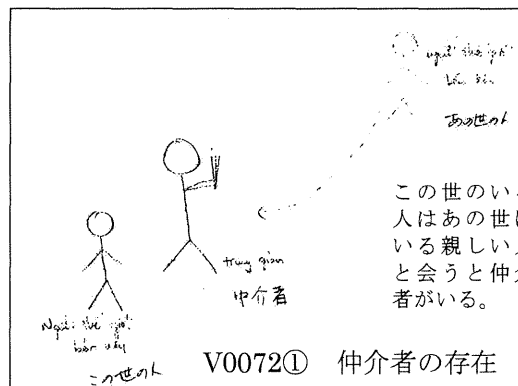 Người thế giới
bên kia
あの世の人
この世のい
人はあの世に
いる親しい
と会うと仲介
者がいる。
trung gian
中介者
Người thế giới
bên này
この世の人
V0072① 仲介者の存在